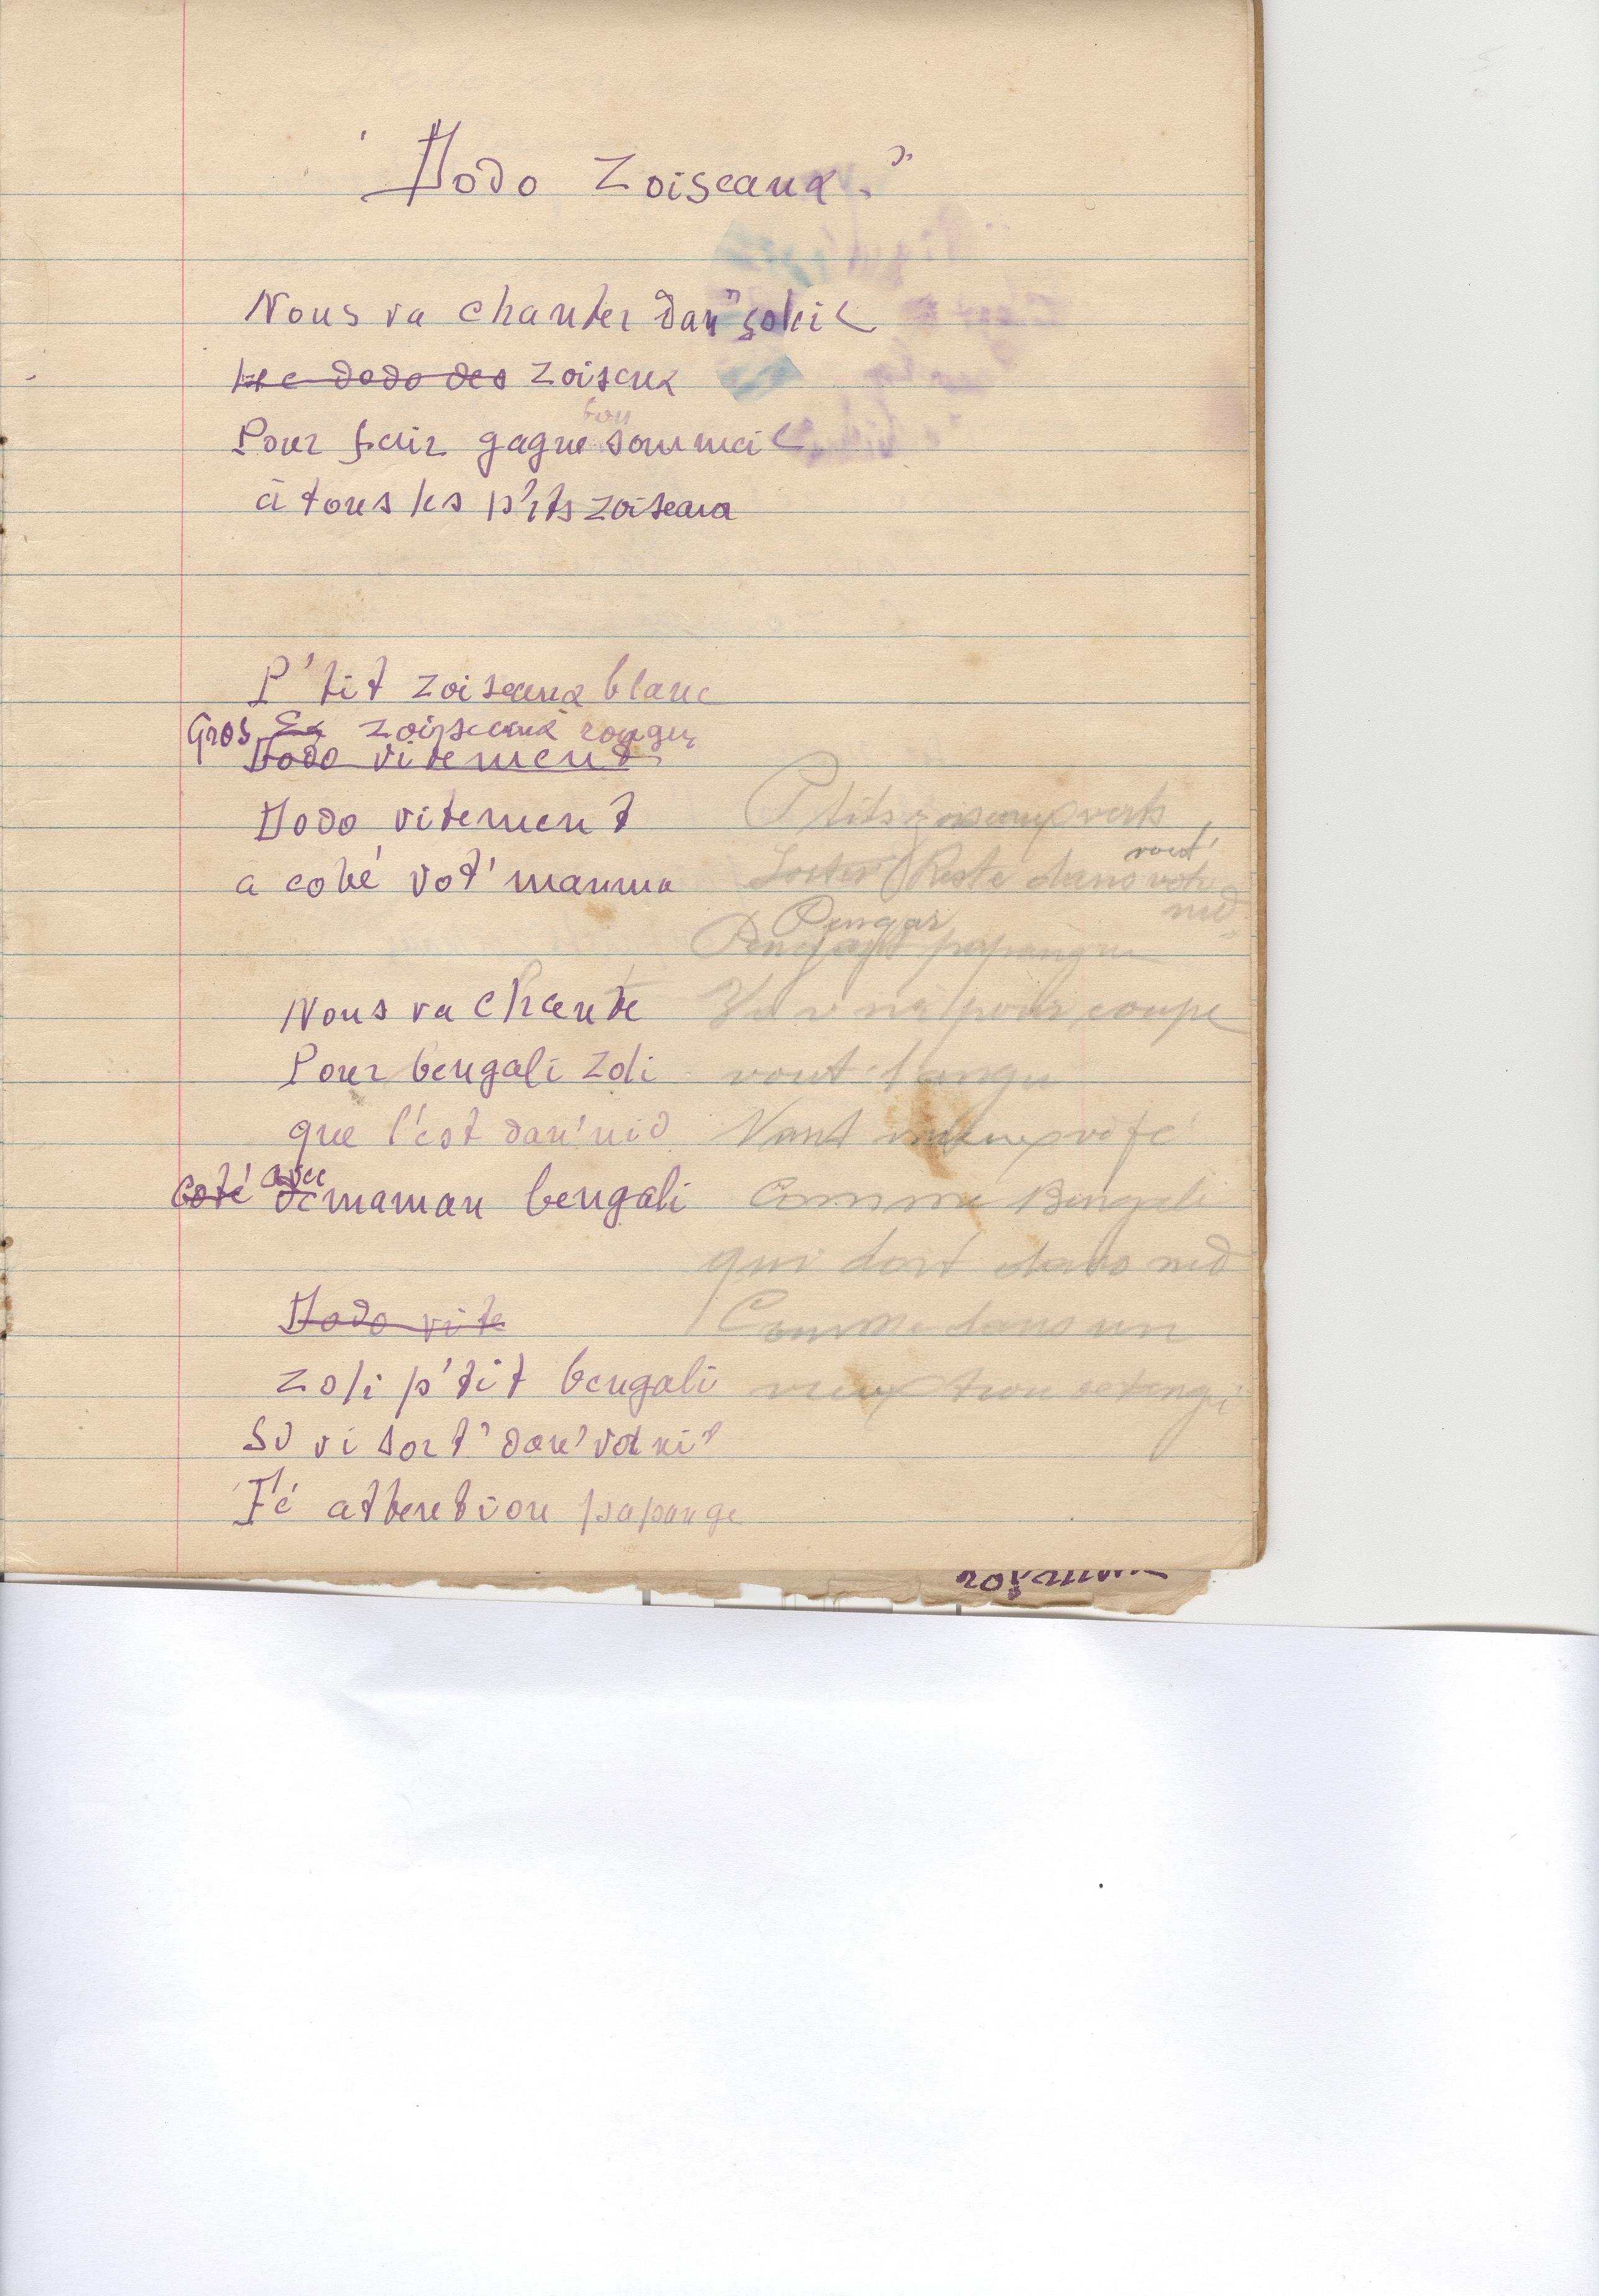 "Dodo Zoiseaux."
Nous va chanter dan' soleil
Le dodo des zoiseux
bon
Pour fair gagne sommeil
à tous les p'tits zoiseaux
P'tit zoiseaux blanc
Gros Ex zoizseaux rouges
Dodo vitement
Dodo vitement
a coté vot' manma
Nous va chante
Pour bengali zoli
que l'est dan' nid
avec
Coté de maman bengali
Dodo vite
Zoli p'tit bengali
Si vi sort' dan' vot nid
Fé attention papangue
P'tits zoiseaux verts
vout'
Reste dans vot
nid
Pengar
papangue
pour coupe
vout' langu
Vant mieux
Comme Bengali
qui dort dans nid
Comme dans un
vieux trou